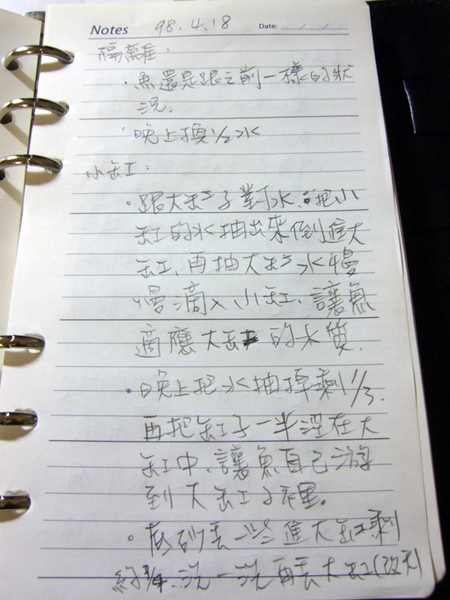 Notes 98.4.18 Date: / /
隔離:
・魚還是跟之前一樣的狀
況.
・晚上換1/2水
小缸:
・跟大缸子對水.把小
缸的水抽出來倒進大
缸,再抽大缸水慢
慢滴入小缸,讓魚
適應大缸的水質.
・晚上把水抽掉剩1/3.
再把缸子一半浸在大
缸中,讓魚自己游
到大缸子裡。
・底砂丟一些進大缸剩
約3/4.洗一洗再丟大缸(改天